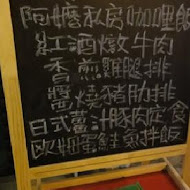 阿嬤私房咖哩飯
紅酒燉牛肉
香煎雞腿排
醬燒豬肋排
日式薑汁豚肉定食
歐姆蛋鮭魚拌飯